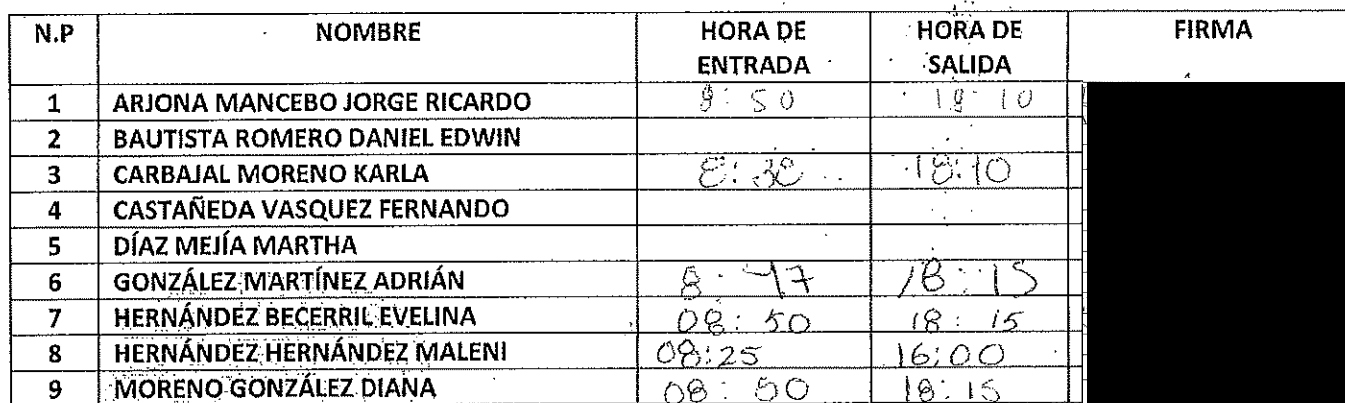 N.P NOMBRE HORA DE ENTRADA HORA DE SALIDA FIRMA
1 ARJONA MANCEBO JORGE RICARDO 8:50 18:10
2 BAUTISTA ROMERO DANIEL EDWIN
3 CARBAJAL MORENO KARLA 8:38 18:10
4 CASTAÑEDA VASQUEZ FERNANDO
5 DÍAZ MEJÍA MARTHA
6 GONZÁLEZ MARTÍNEZ ADRIÁN 8:47 18:15
7 HERNÁNDEZ BECERRIL EVELINA 08:50 18:15
8 HERNÁNDEZ HERNÁNDEZ MALENI 08:25 16:00
9 MORENO GONZÁLEZ DIANA 08:50 18:15